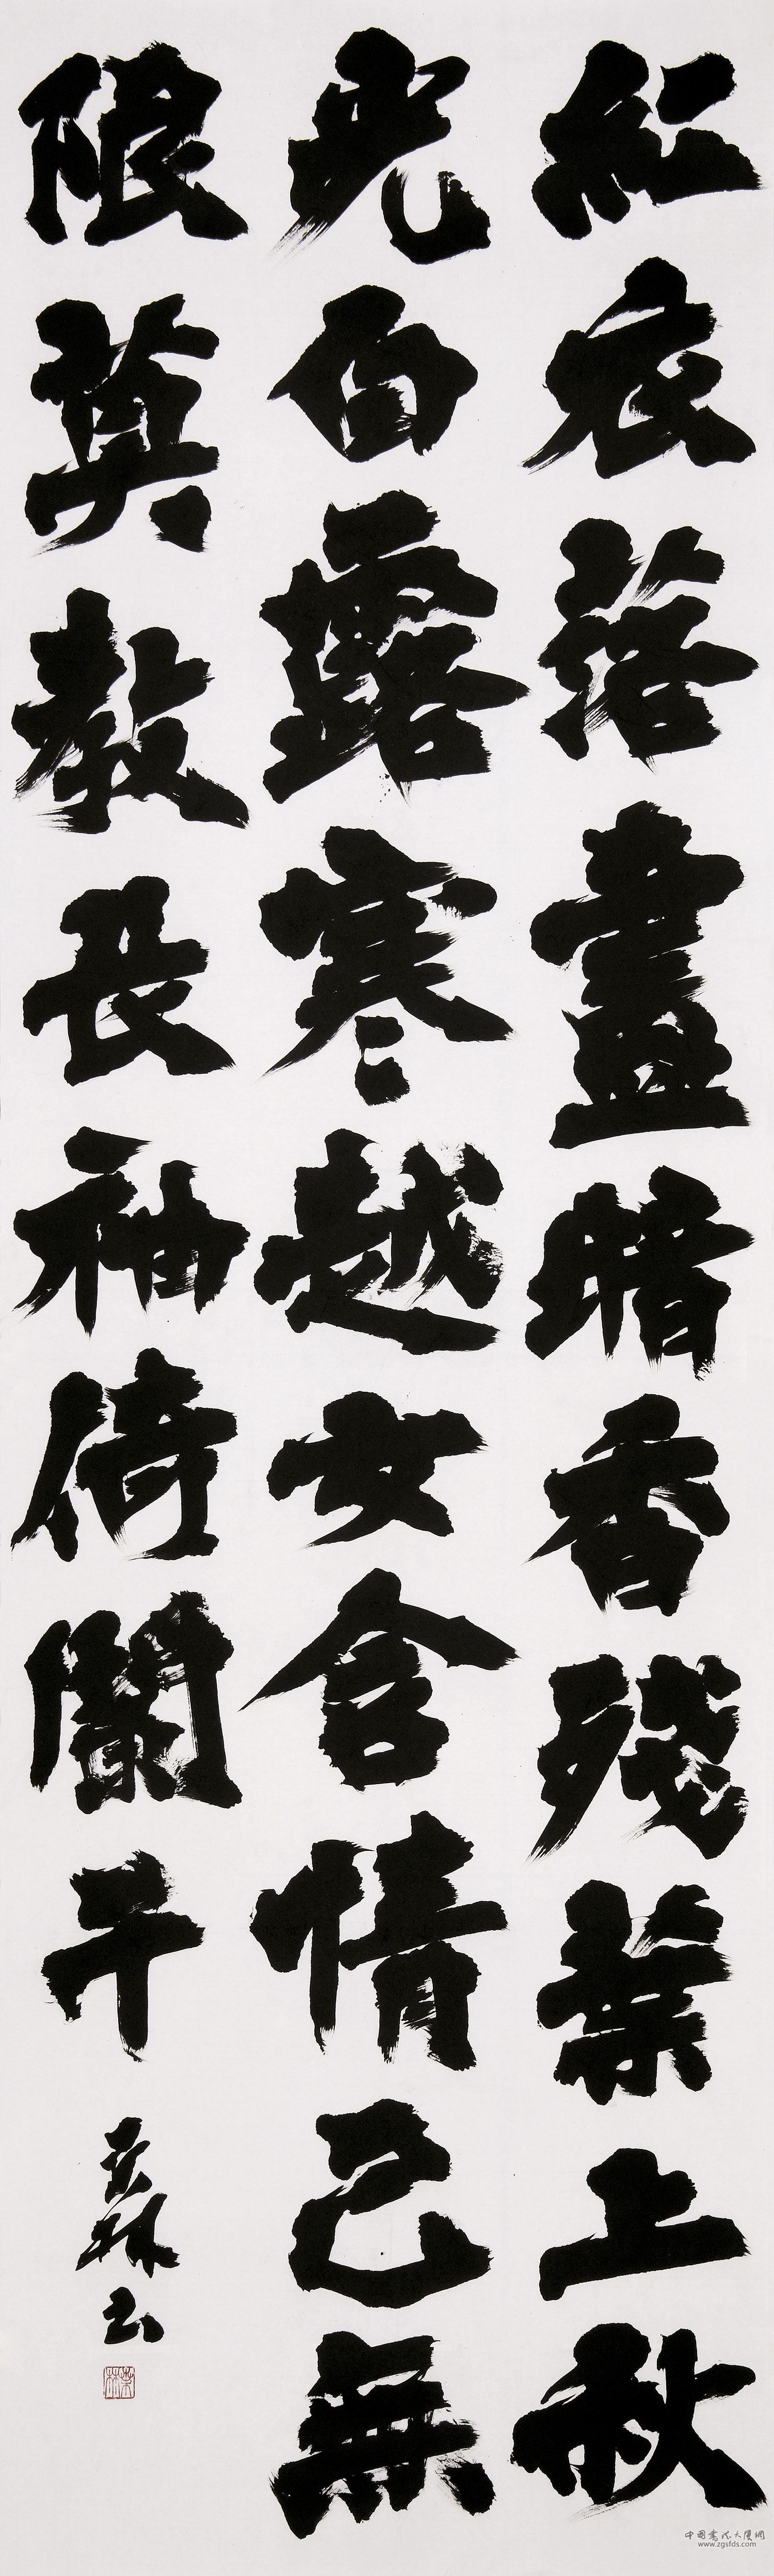 紅衣落盡暗香殘葉上秋
光白露寒越女含情已無
限莫教長袖倚闌干
林书
中國書法大廈網
www.zgsfds.com